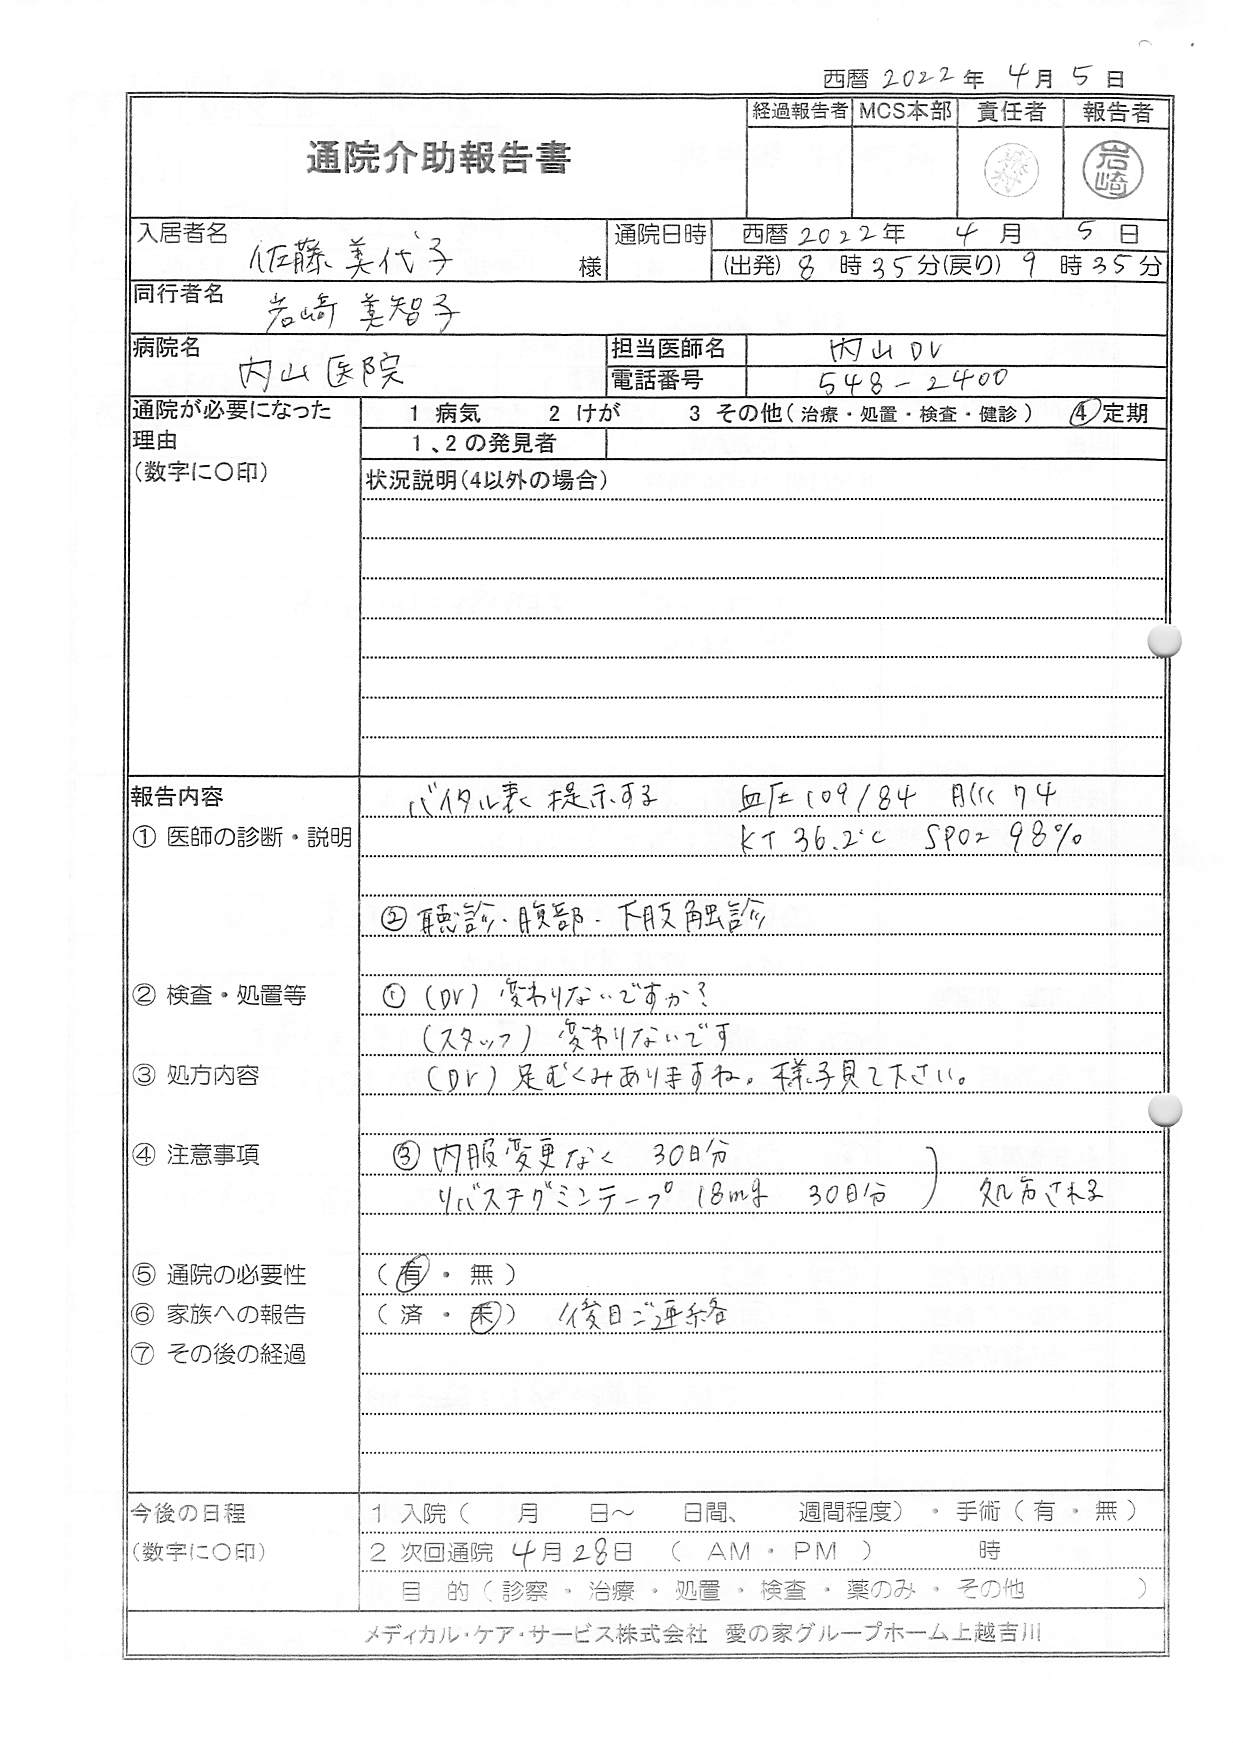 西暦 2022 年 4 月 5 日
通院介助報告書
経過報告者 MCS本部 責任者 報告者
岩崎
入居者名 佐藤 美代子 様
通院日時 西暦 2022年 4 月 5 日
(出発) 8 時 35 分(戻り) 9 時 35 分
同行者名 岩崎 美智子
病院名 内山医院
担当医師名 内山 Dr
電話番号 548-2400
通院が必要になった理由
(数字に〇印)
1 病気 2 けが 3 その他(治療・処置・検査・健診) ④定期
1、2の発見者
状況説明(4以外の場合)
報告内容 バイタル表 提示する 血圧 109/84 脈 74
① 医師の診断・説明 KT 36.2℃ SPO2 98%
② 聴診・腹部・下肢触診
② 検査・処置等 ① (Dr) 変わりないですか?
(スタッフ) 変わりないです
③ 処方内容 (Dr) 足むくみありますね。様子見て下さい。
④ 注意事項 ③ 内服変更なく 30日分
リバスチグミンテープ 18mg 30日分 処方される
⑤ 通院の必要性 (有・無)
⑥ 家族への報告 (済・未) 後日ご連絡
⑦ その後の経過
今後の日程
(数字に〇印)
1 入院( 月 日～ 日間、 週間程度)・手術(有・無)
2 次回通院 4月28日 ( AM・PM ) 時
目 的(診察・治療・処置・検査・薬のみ・その他 )
メディカル・ケア・サービス株式会社 愛の家グループホーム上越吉川